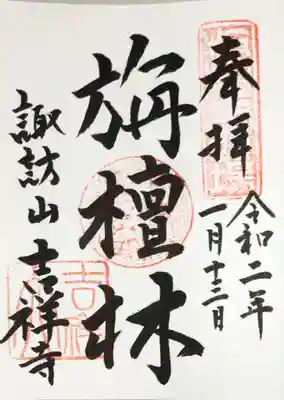 奉拝
令和二年
一月十三日
旃檀林
諏訪山吉祥寺